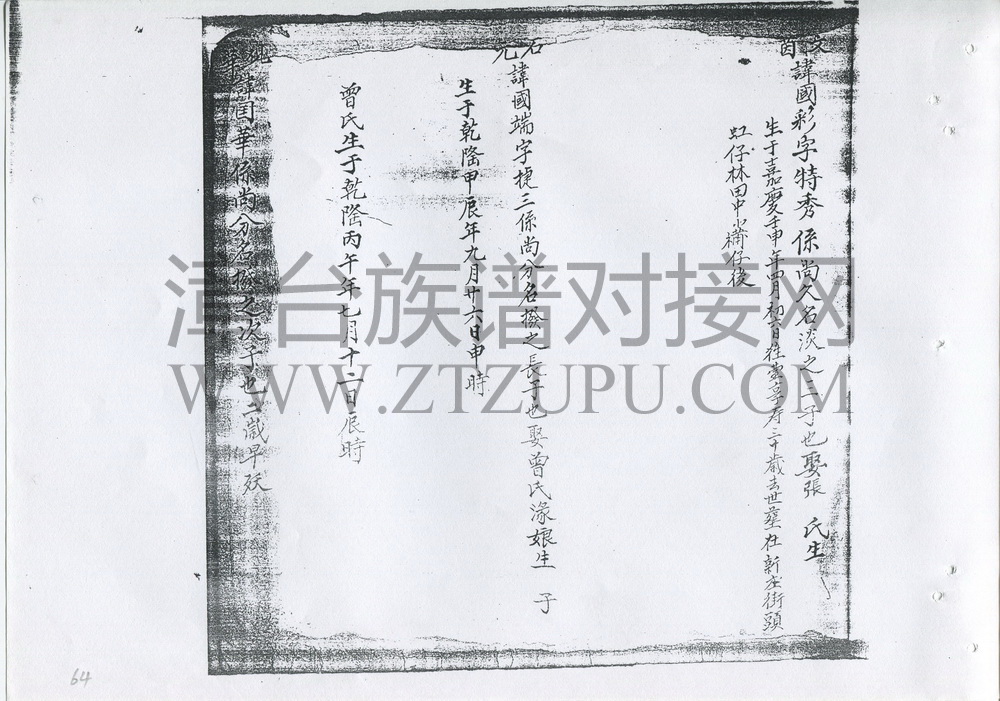 諱國彩字特秀係尚久名淡之二子也娶張 氏生
生于嘉慶壬申年四月初六日往雲享寿三十歲去世葬在新庄街頭
虹仔林田中滿仔後
石
諱國端字捷三係尚分名撥之長子也娶曾氏湪娘生 子
生于乾隆甲辰年九月廿六日申時
曾氏生于乾隆丙午年七月十二日辰時
諱閏華係尚分名撥之次子也二歲早殀
漳台族谱对接网
WWW.ZTZUPU.COM
64